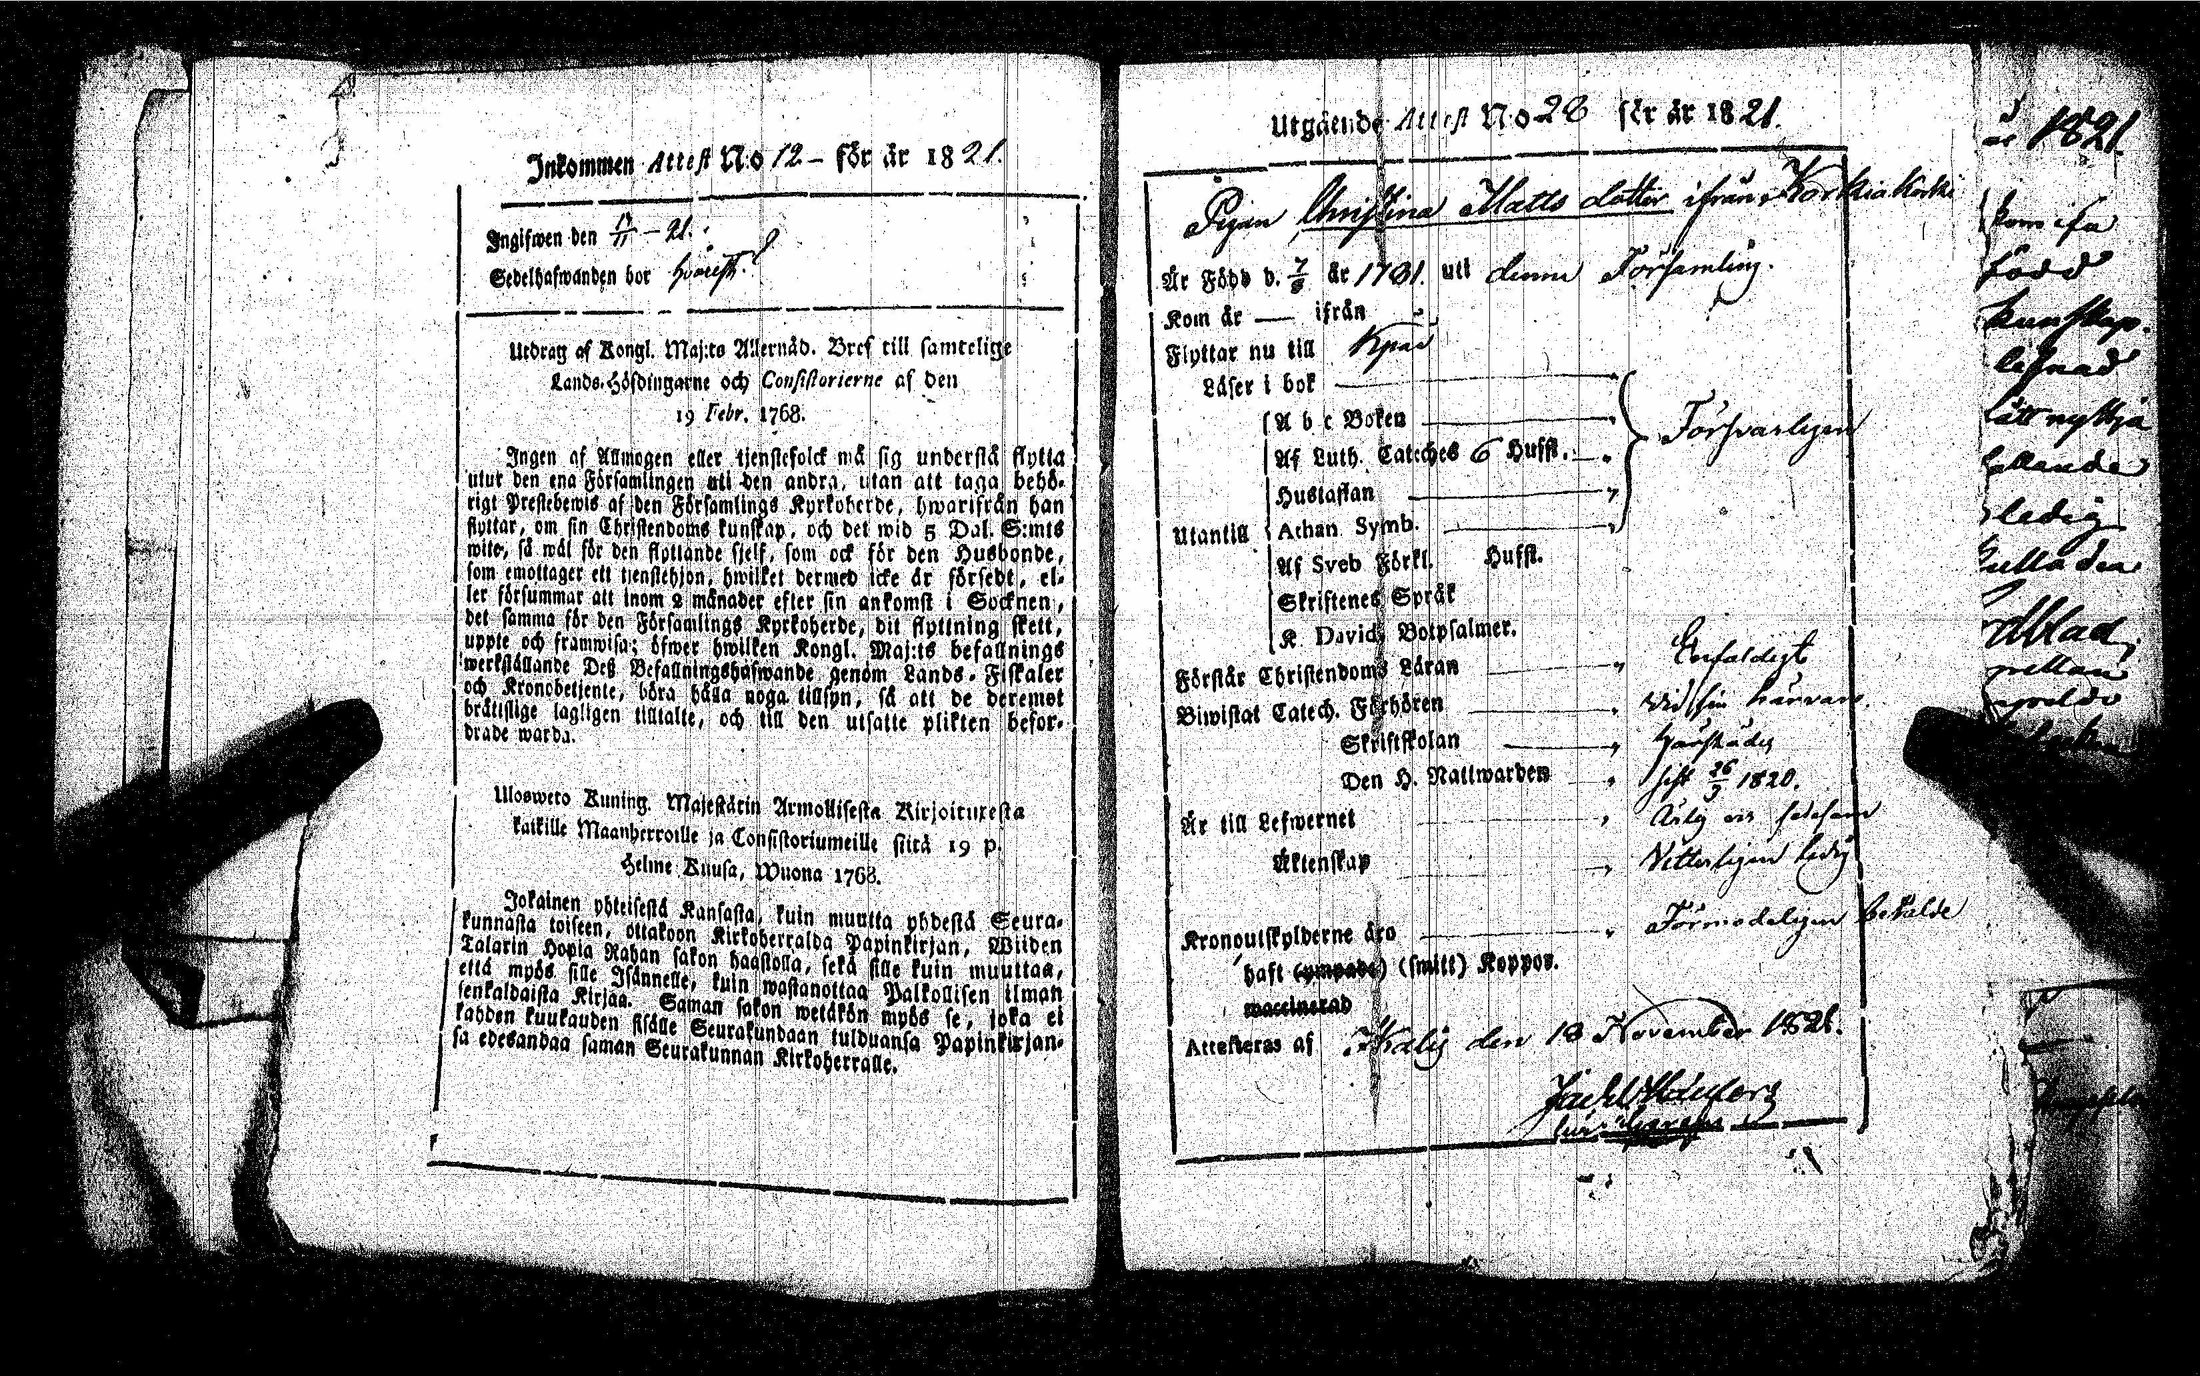 Inkommen Attest No 12 – för år 1821.
Ingifwen den 17/11 – 21.
Sedelhafwanden bor hvarest?
Utdrag af Kongl. Maj:ts Allernåd. Bref till samtelige
Lands-Höfdingarne och Consistorierne af den
19 Febr. 1768.
Ingen af Allmogen eller tjenstefolck må sig understå flytta
utur den ena Församlingen uti den andra, utan att taga behö-
rigt Prestebewis af den Församlings Kyrkoherde, hwarifrån han
flyttar, om sin Christendoms kunskap, och det wid 5 Dal. S:mts
wite, så wäl för den flyttande sjelf, som ock för den Husbonde,
som emottager ett tienstehjon, hwilket dermed icke är försedt, el-
ler försummar att inom 2 månader efter sin ankomst i Socknen,
det samma för den Församlings Kyrkoherde, dit flyttning skett,
uppte och framwisa; öfwer hwilken Kongl. Maj:ts befallnings
werkställande Deß Befallningshafwande genom Lands-Fiskaler
och Kronobetjente, böra hålla noga tillsyn, så att de deremot
bråttslige lagligen tilltalte, och till den utsatte plikten befor-
drade warda.
Ulosweto Kuning. Majestätin Armollisesta Kirjoituxesta
kaikille Maanherroille ja Consistoriumeille siitä 19 p.
Helme Kuusa, Wuona 1768.
Jokainen yhteisestä Kansasta, kuin muutta yhdestä Seura-
kunnasta toiseen, ottakoon Kirkoherralda Papinkirjan, Wiiden
Talarin Hopia Rahan sakon haastolla, sekä sille kuin muuttaa,
että myös sille Isännelle, kuin wastanottaa Palkollisen ilman
senkaldaista Kirjaa. Saman sakon wetäkön myös se, joka ei
kahden kuukauden sisälle Seurakundaan tulduansa Papinkirjan-
sa edesandaa saman Seurakunnan Kirkoherralle.
Utgående Attest No 28 för år 1821.
Pigan Christina Matts dotter ifrån
Är Född d. 7/8 år 1781. uti denna Församling.
Kom år — ifrån
Flyttar nu till Kyrö
Läser i bok
A b c Boken
Försvarligen
Af Luth. Cateches 6 Hufst.
Hustaflan
Utantill
Athan. Symb.
Af Sveb Förkl. Hufst.
Skriftenes Språk
K. Davids Botpsalmer.
Förstår Christendoms Läran Enfaldigt
Biwistat Catech. Förhören vid sin härvaro.
Skriftskolan
Den H. Nattwarden sist 26/3 1820.
Är till Lefwernet Ärlig
Äktenskap Vitterligen ledig
Kronoutskylderne äro Förmodeligen betalde
haft (ympade) (smitt) Koppor.
vaccinerad
Attesteras af Ikalis den 13 November 1821.
år 1821.
född
kunskap.
lefnad
ledig